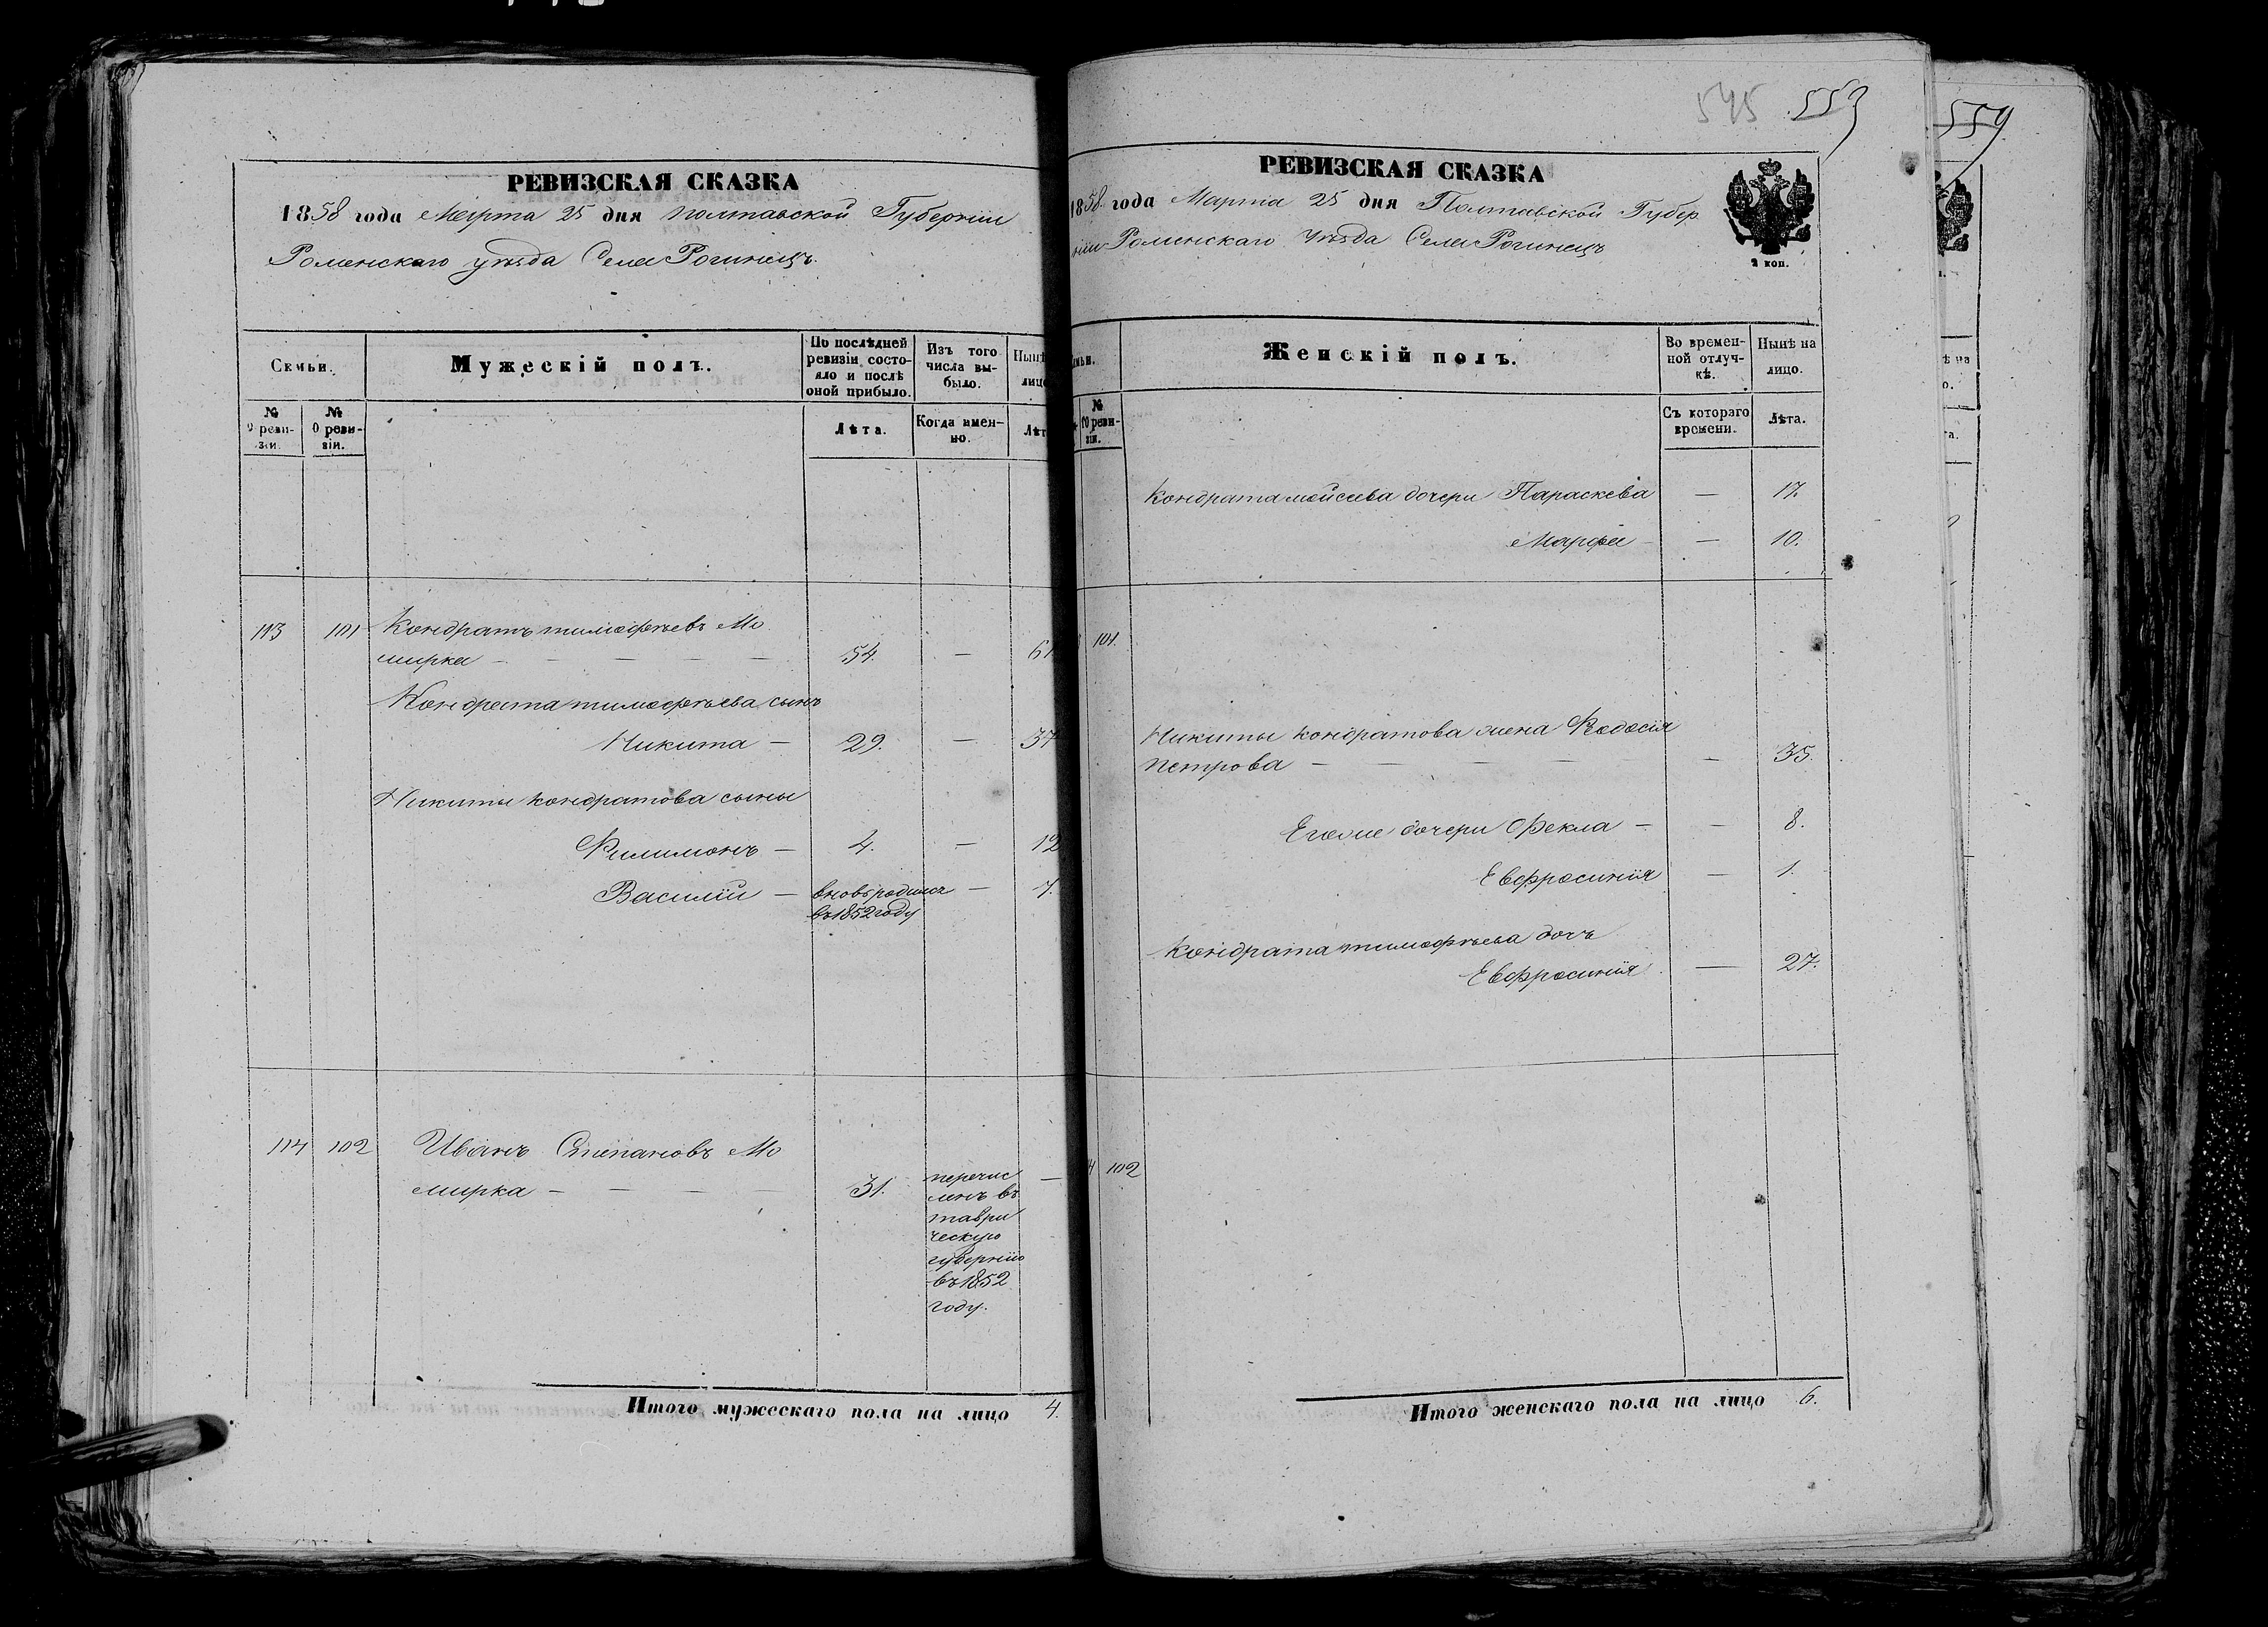 РЕВИЗСКАЯ СКАЗКА
1858 года Марта 25 дня Полтавской Губерніи
Роменскаго уѣзда Села Рогинецъ.
Семьи.
Мужескій полъ.
По послѣдней ревизіи состояло и послѣ оной прибыло.
Изъ того числа выбыло.
Нынѣ
лицо
№ 9 ревизіи.
№ 10 ревизіи.
Лѣта.
Когда именно.
Лѣт
113 101 Кондратъ тимофѣевъ Мо
мирка — — — — 54. — 61
Кондрата тимофѣева сынъ
Никита — 29. — 37
Никиты кондратова сыны
Филимонъ — 4. — 12
Василій — вновь родился — 7.
въ 1852 году
114 102 Иванъ Степановъ Мо
мирка — — — — 31. —
перечис
ленъ въ
таври
ческую
губернію
въ 1852
году.
Итого мужескаго пола на лицо 4.
545 553
РЕВИЗСКАЯ СКАЗКА
1858 года Марта 25 дня Полтавской Губер
ніи Роменскаго уѣзда Села Рогинецъ
2 коп.
Женскій полъ.
Во временной отлучкѣ.
Нынѣ на лицо.
№ 10 ревизіи.
Съ котораго времени.
Лѣта.
Кондрата мойсеева дочери Параскева — 17.
Марфа — — 10.
101.
Никиты кондратова жена Феодосія
Петрова — — — — — 35.
Егоже дочери Фекла — — 8.
Евфросинія — 1.
Кондрата тимофѣева дочь
Евфросинія — 27.
102
Итого женскаго пола на лицо 6.
554